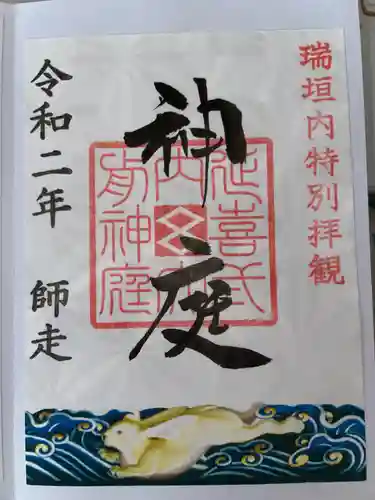 瑞垣内特別拝観
神庭
延喜式
内
神庭
令和二年 師走